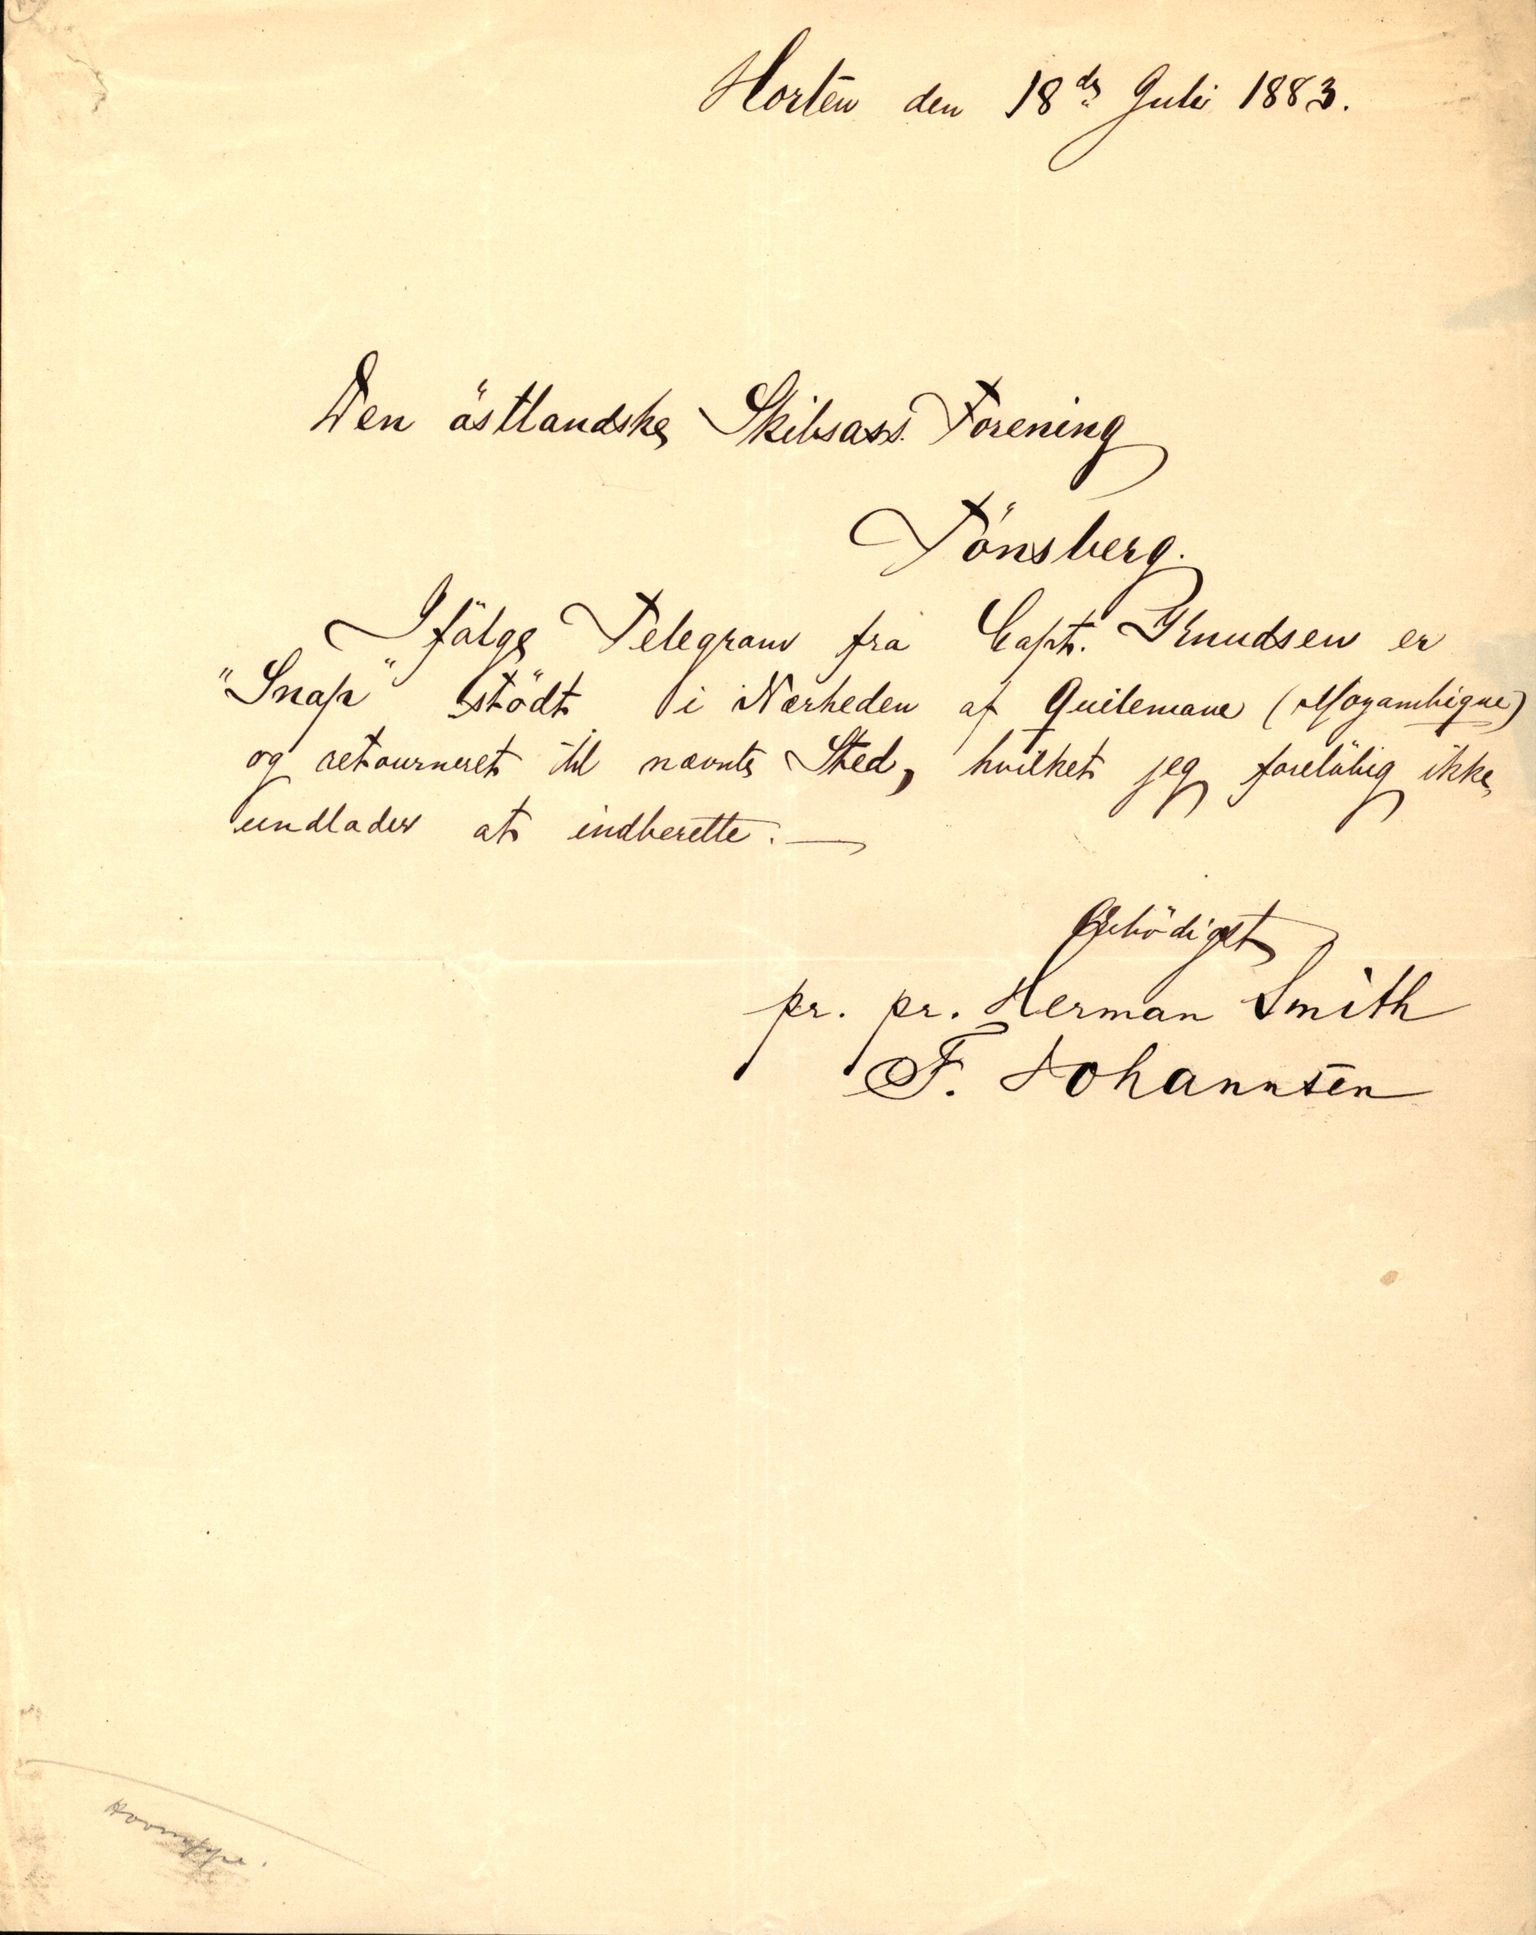 Horten den 18de Juli 1883.
Den östlandske Skibsass. Forening
Tönsberg.
Ifölge Telegram fra Capt. Knudsen er
"Snap" stödt i Nærheden af Quilemane (Mozambique)
og retourneret til nævnte Sted, hvilket jeg forelöbig ikke
undlader at indberette. —
Ærbödigst
pr. pr. Herman Smith
F. Johannsen